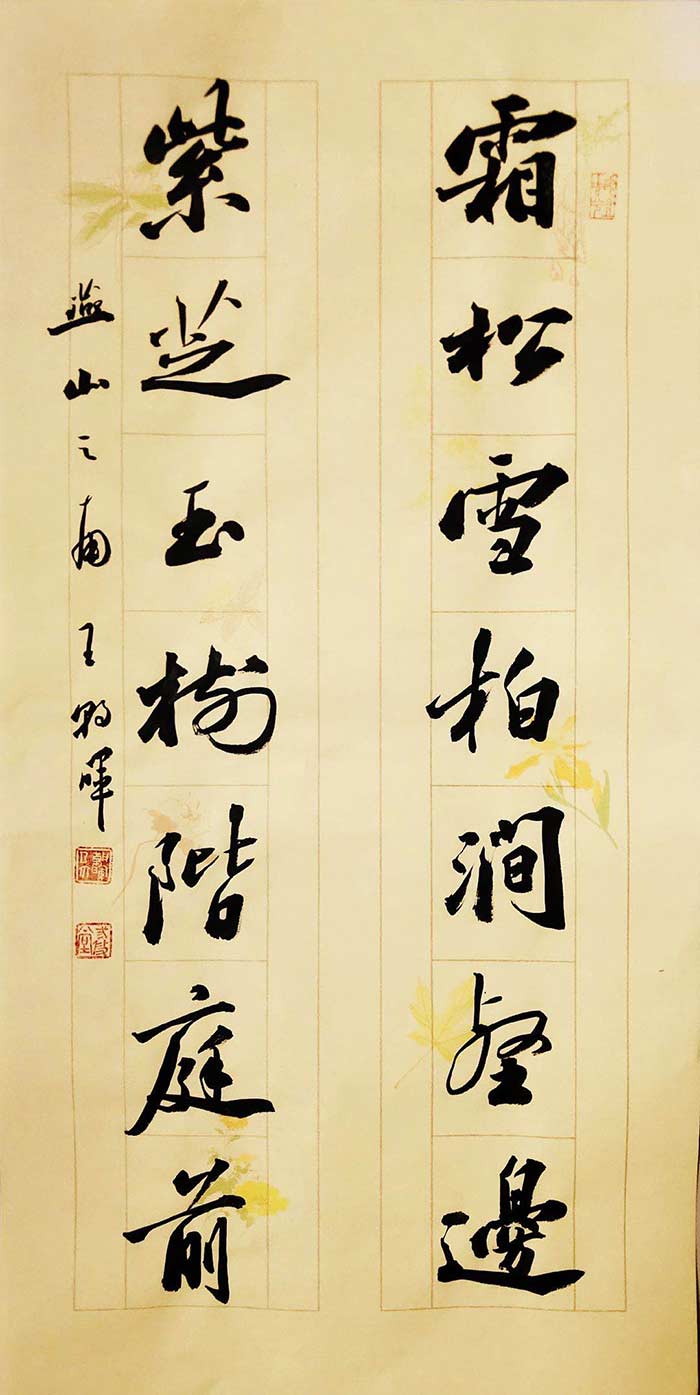 霜松雪柏澗壑邊
紫芝玉樹階庭前
燕山之南王朝暉